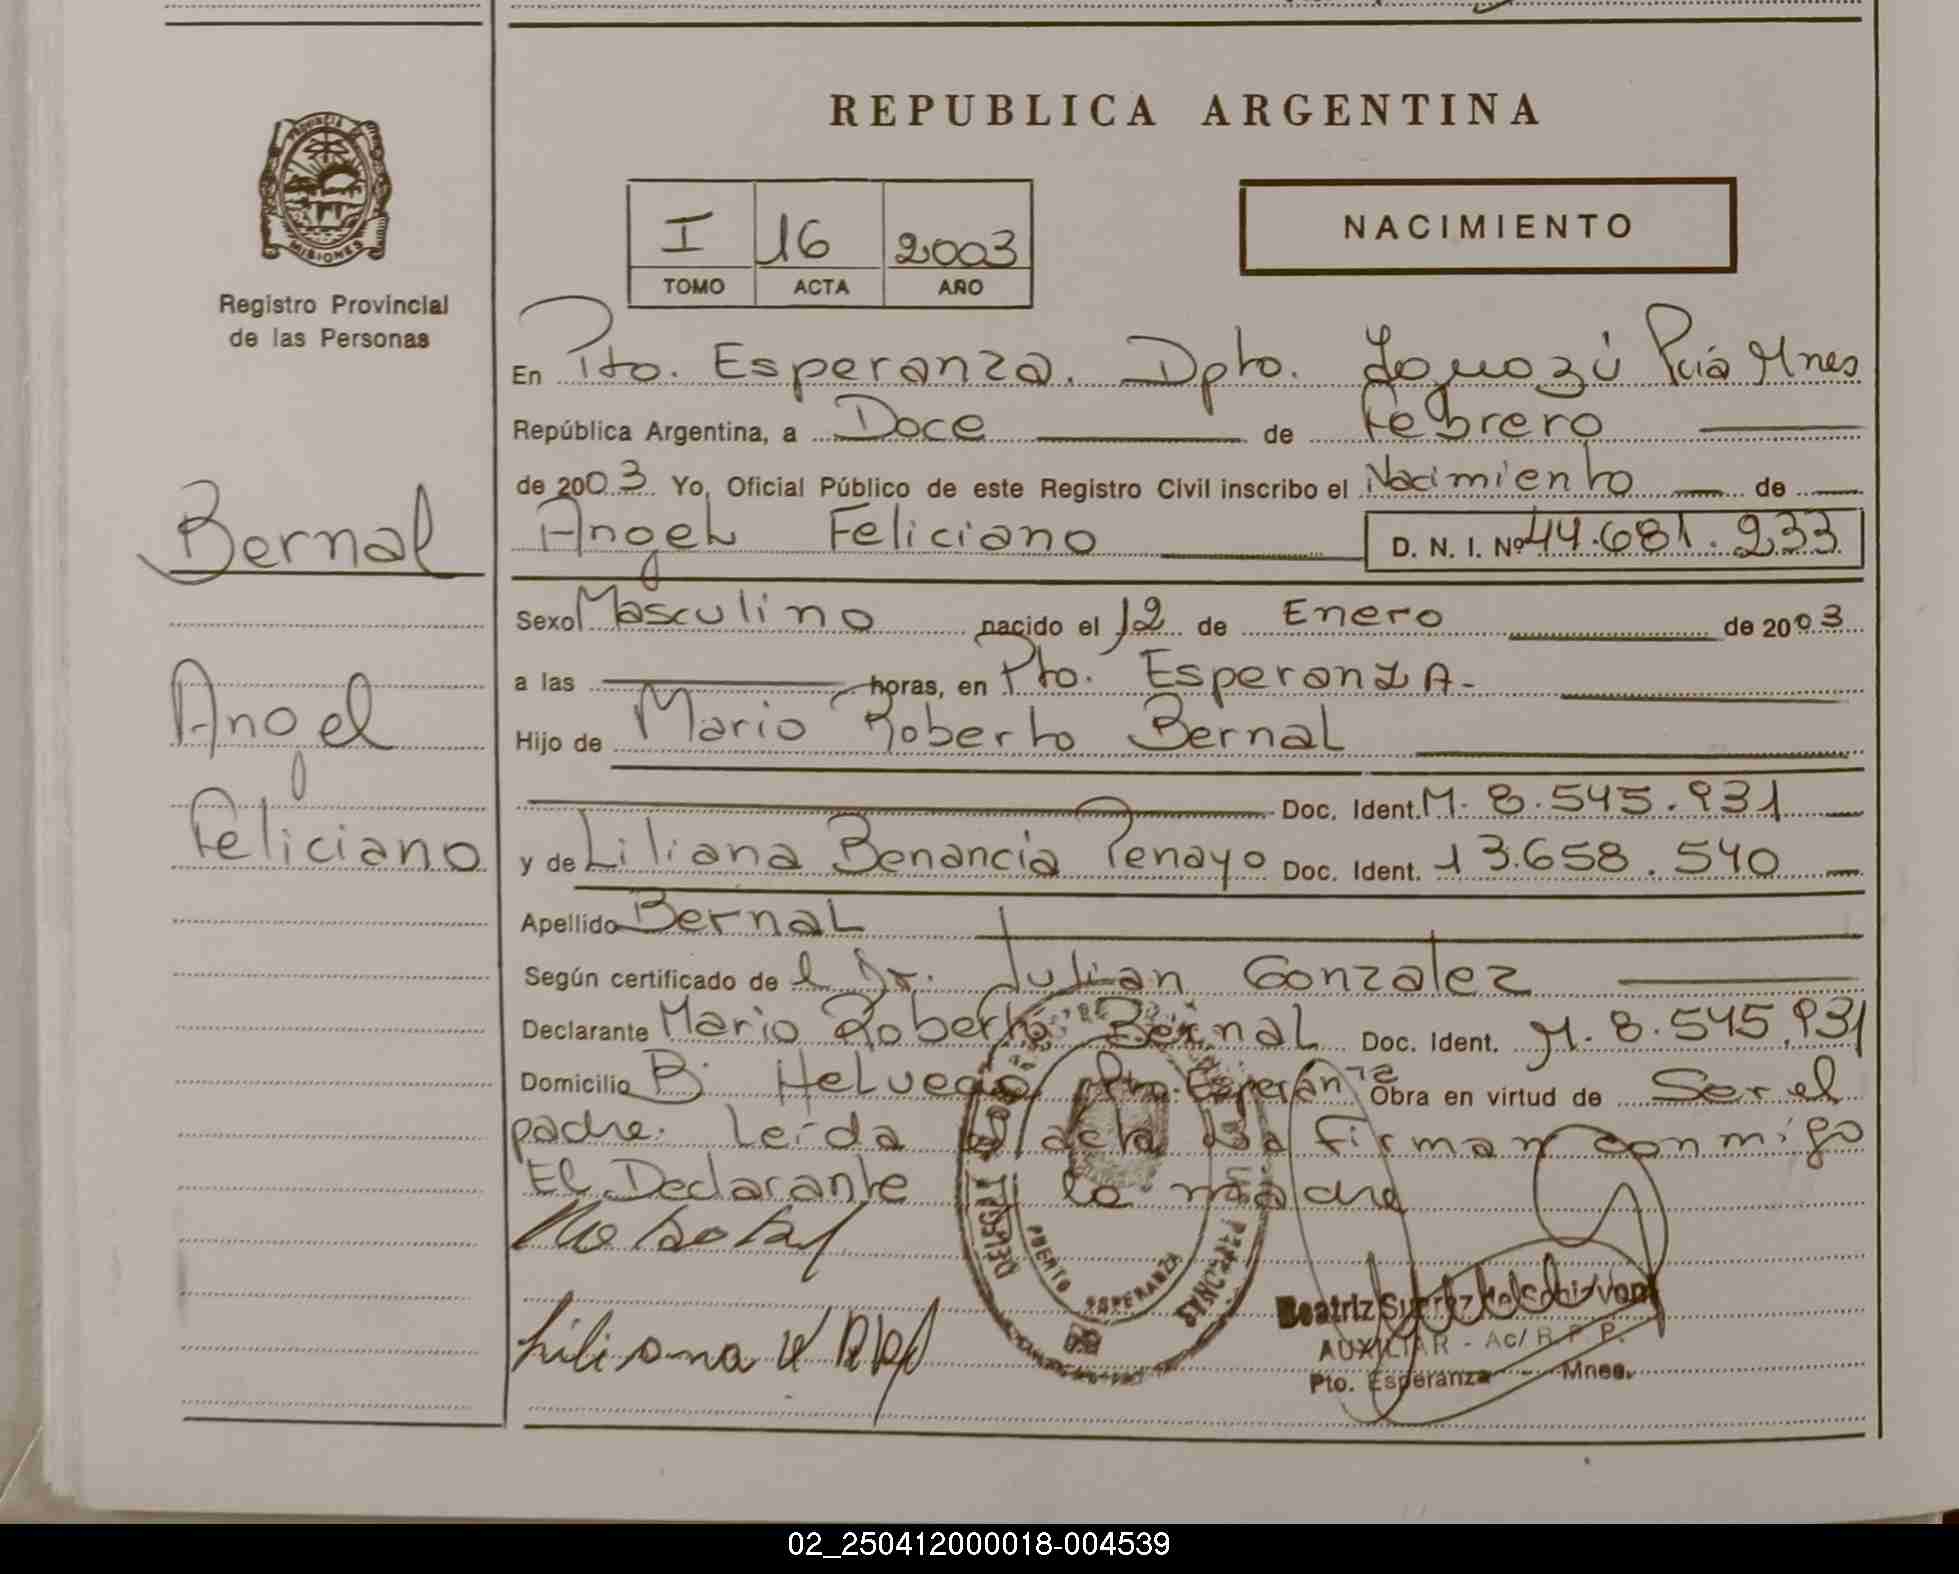 REPUBLICA ARGENTINA
PROVINCIA DE
MISIONES
Registro Provincial
de las Personas
I 16 2003
TOMO ACTA AÑO
NACIMIENTO
En Pto. Esperanza. Dpto. Iguazú Pcia Mnes
República Argentina, a Doce de Febrero
de 2003 Yo, Oficial Público de este Registro Civil inscribo el Nacimiento de
Bernal
Angel Feliciano D. N. I. Nº 44.681.233
Sexo Masculino nacido el 12 de Enero de 2003
a las horas, en Pto. Esperanza.
Angel
Hijo de Mario Roberto Bernal
Doc. Ident. M. 8.545.931
Feliciano
y de Liliana Benancia Penayo Doc. Ident. 13.658.540
Apellido Bernal
Según certificado de l Dr. Julian Gonzalez
Declarante Mario Roberto Bernal Doc. Ident. M. 8.545.931
Domicilio B: Helvecia Pto. Esperanza Obra en virtud de Ser el
padre. Leída el acta la firman conmigo
El Declarante y la madre
PUERTO ESPERANZA
Liliana
Beatriz Suarez de Schiavoni
AUXILIAR - Ac/ R.P.P.
Pto. Esperanza - Mnes.
02_250412000018-004539